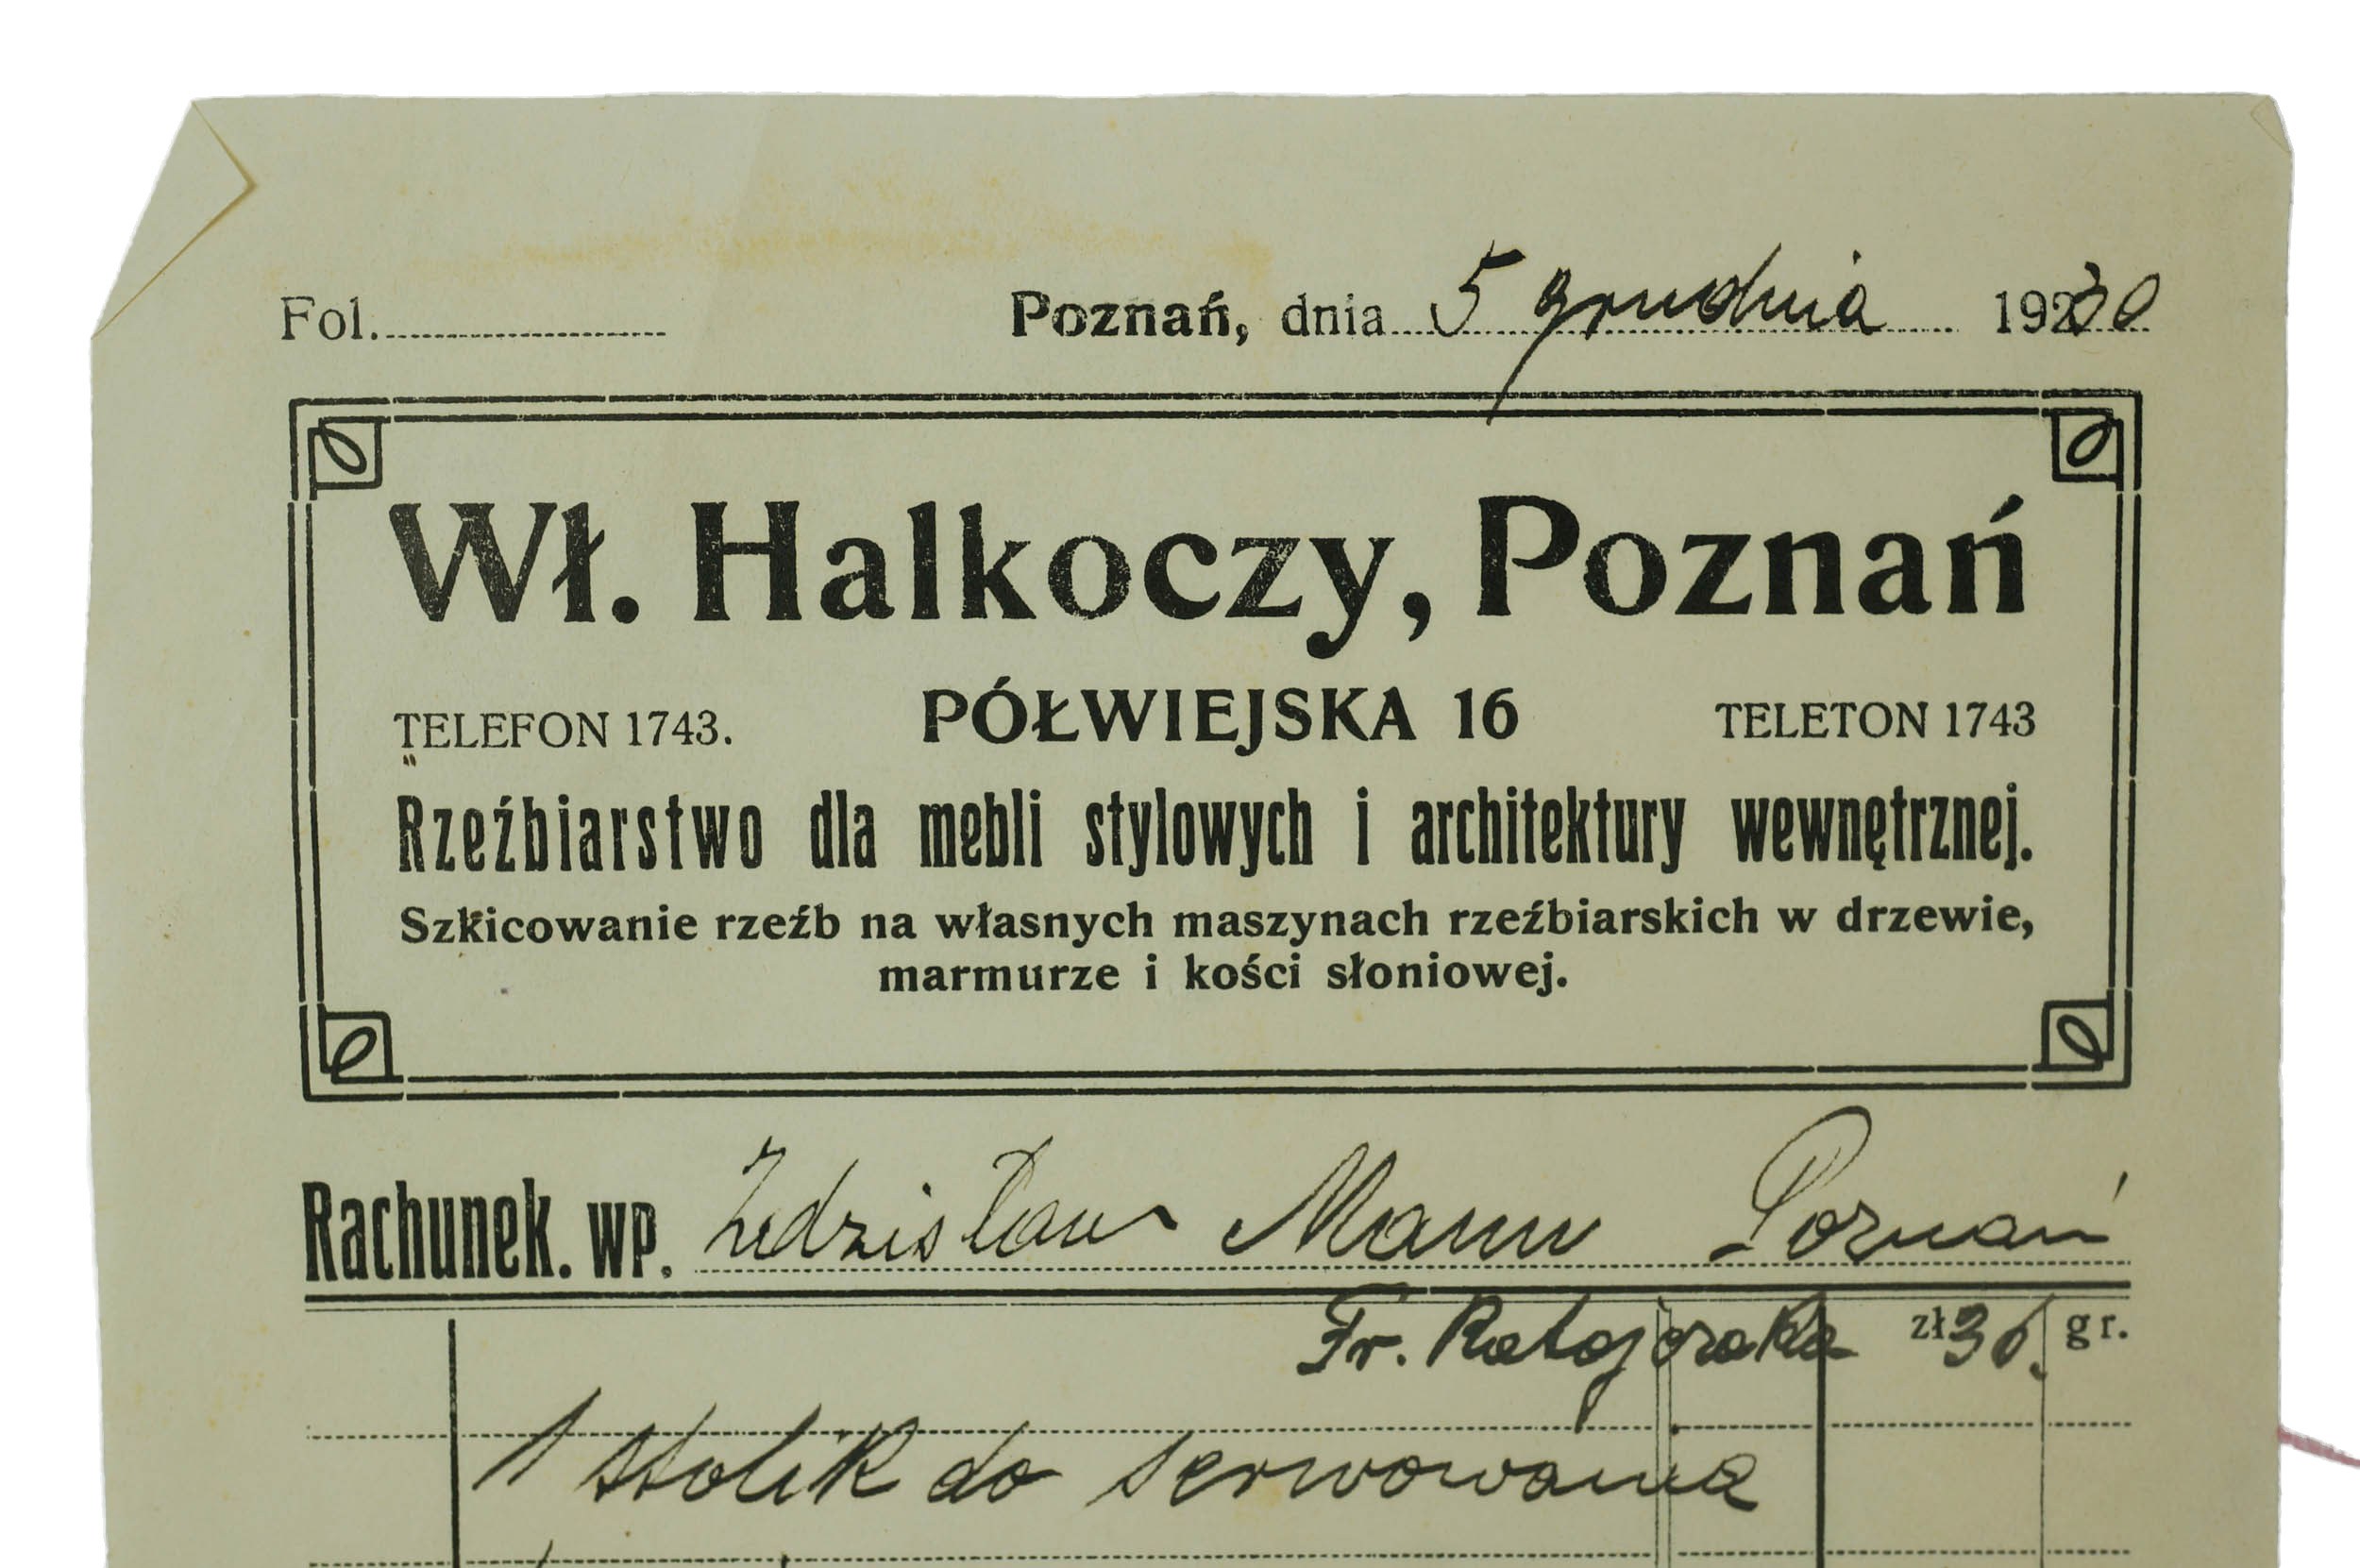 Fol.
Poznań, dnia 5 grudnia 1930
Wł. Halkoczy, Poznań
TELEFON 1743. PÓŁWIEJSKA 16 TELETON 1743
Rzeźbiarstwo dla mebli stylowych i architektury wewnętrznej.
Szkicowanie rzeźb na własnych maszynach rzeźbiarskich w drzewie,
marmurze i kości słoniowej.
Rachunek. wp. Zdzisław Mann Poznań
Fr. Ratajczaka 36. zł gr.
1 stolik do serwowania